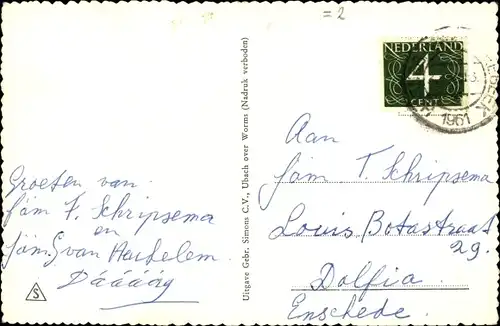 = 2
NEDERLAND
4
CENT
1961
Groeten van
fam F. Schripsema
en
fam. G van Hachelem.
Dááááág
S
Uitgave Gebr. Simons C.V., Ubach over Worms (Nadruk verboden)
Aan
fam T. Schripsema
Louis Botastraat
29.
Dolfia.
Enschede.